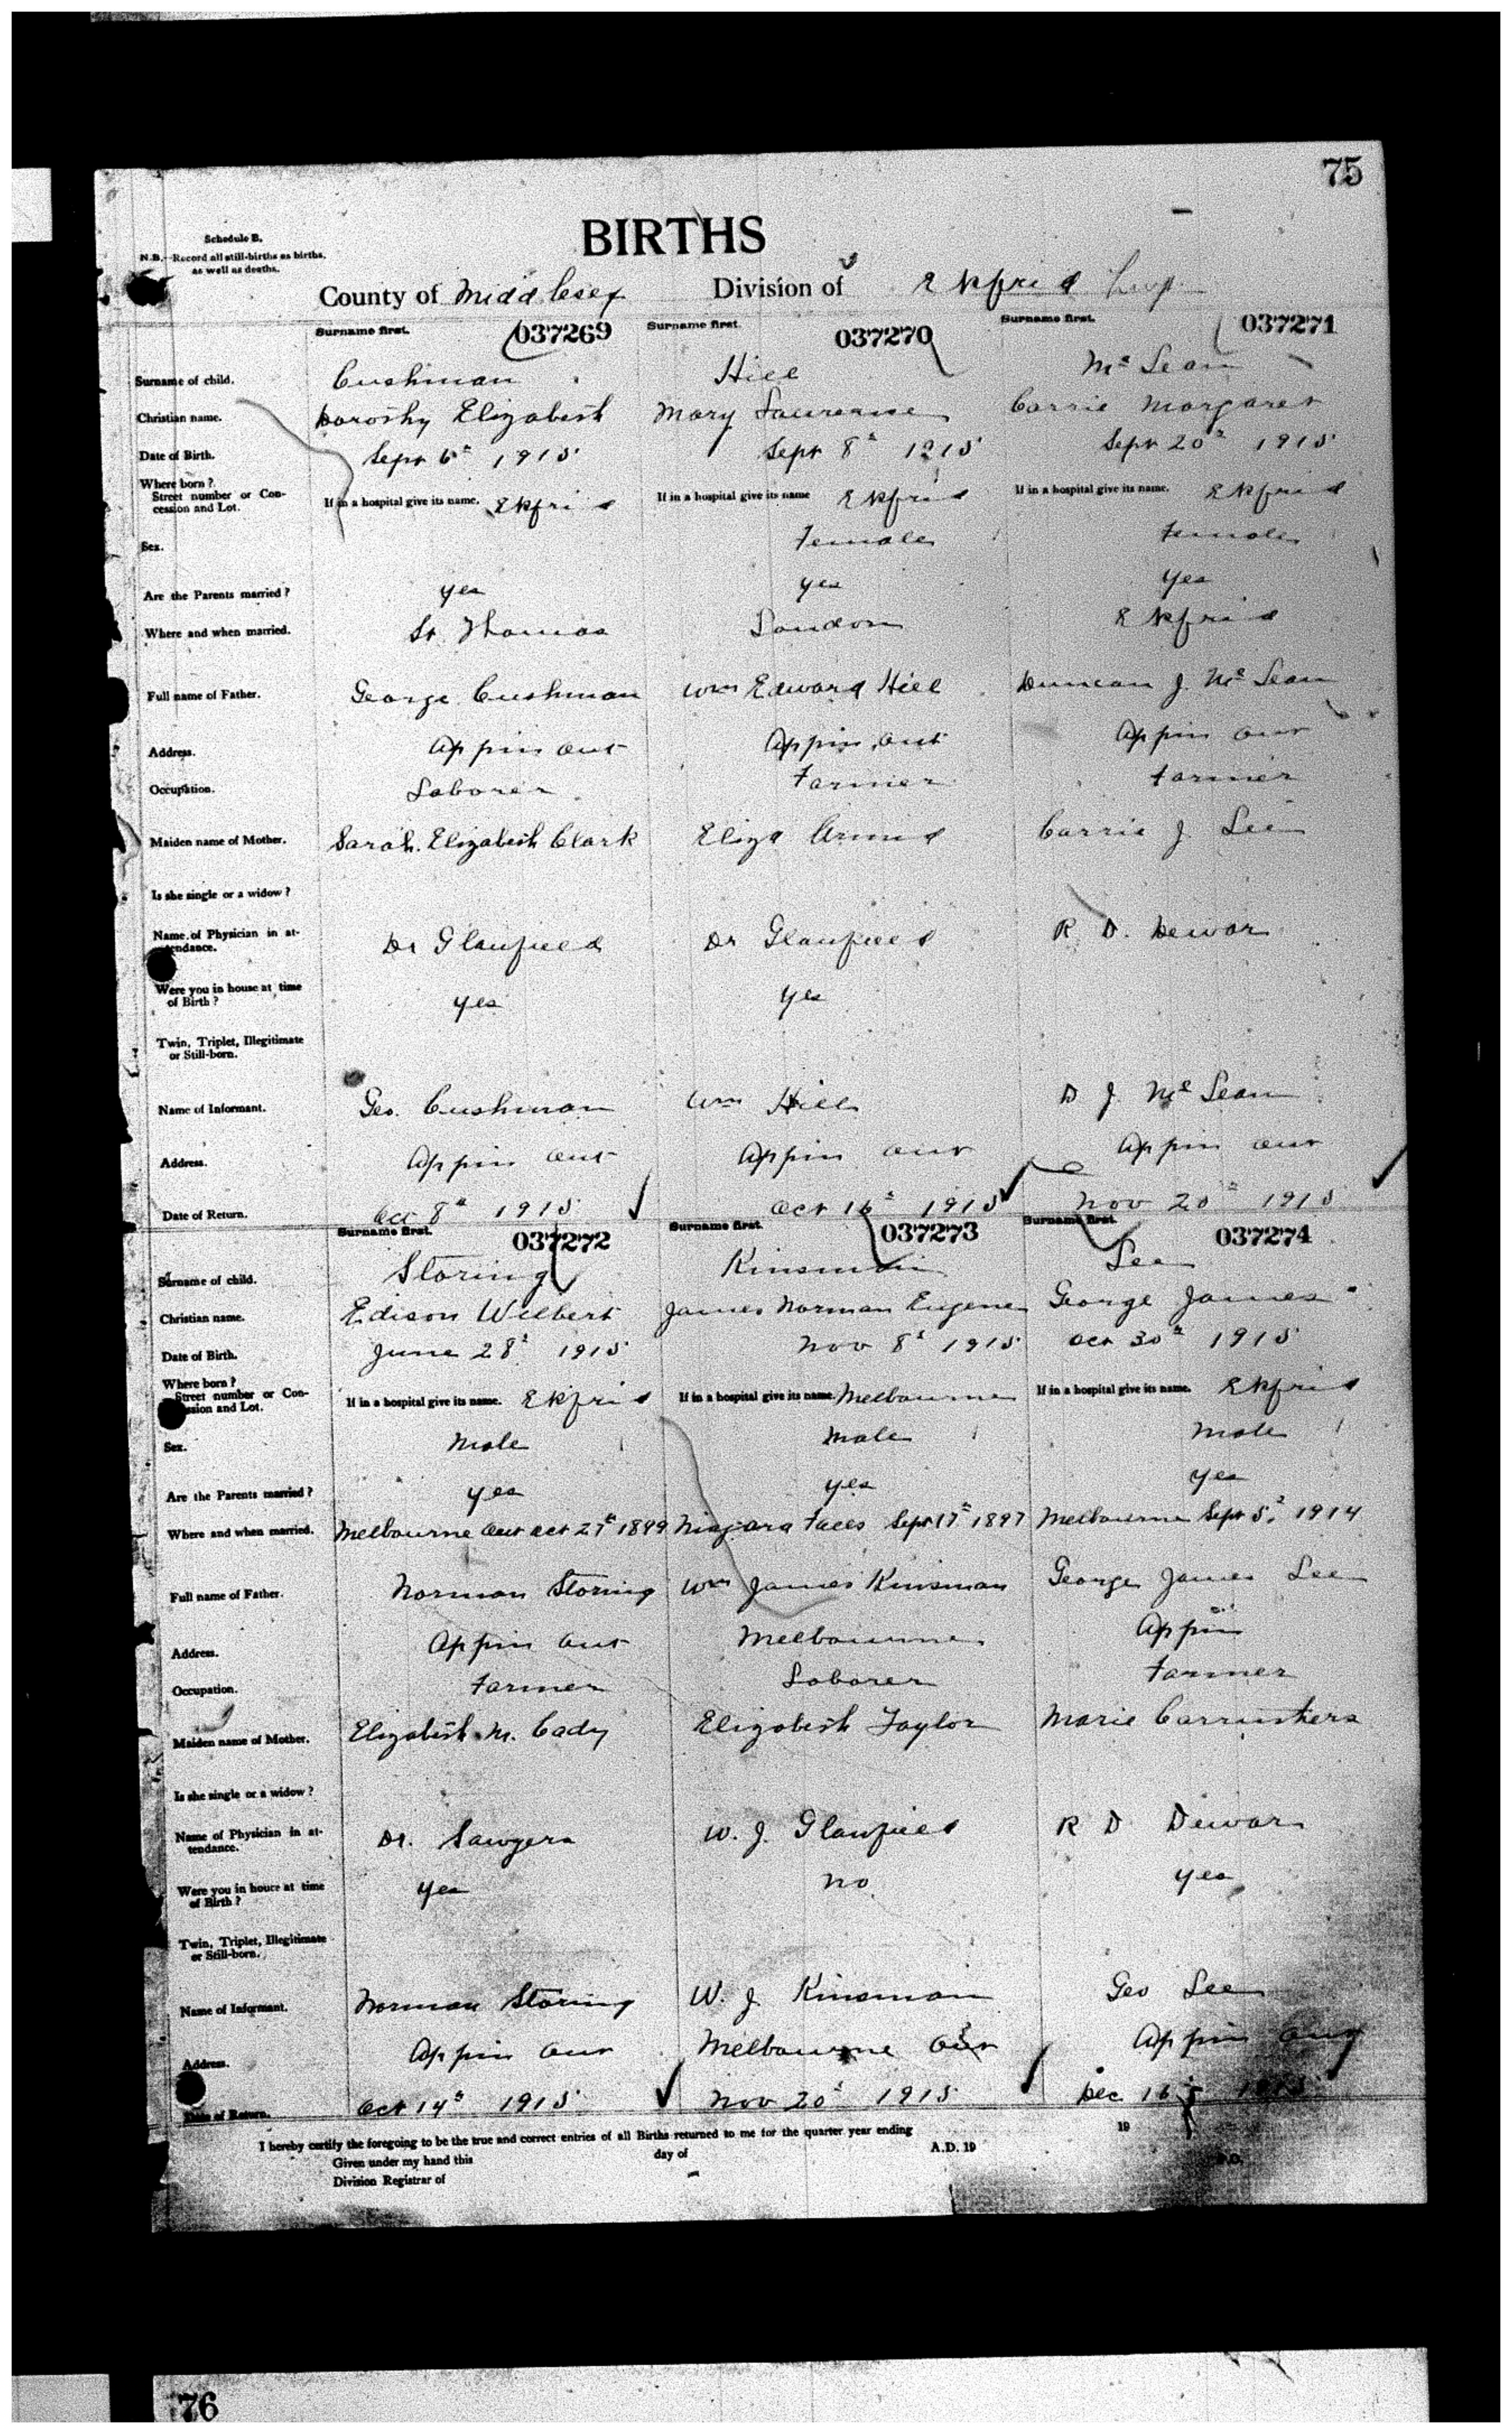 75
BIRTHS
Schedule B.
N.B.—Record all still-births as births,
as well as deaths.
County of Middlesex Division of Ekfrid Twp.
Surname first. 037269 Surname first. 037270 Surname first. 037271
Surname of child. Cushman Hill Mc Lean
Christian name. Dorothy Elizabeth Mary Laurense Carrie Margaret
Date of Birth. Sept 6th 1915 Sept 8th 1915 Sept 20th 1915
Where born?
Street number or Con-
cession and Lot. If in a hospital give its name. Ekfrid If in a hospital give its name Ekfrid If in a hospital give its name. Ekfrid
Sex. Female Female
Are the Parents married? yes yes yes
Where and when married. St. Thomas London Ekfrid
Full name of Father. George Cushman Wm Edward Hill Duncan J. Mc Lean
Address. Appin Ont Appin Ont Appin Ont
Occupation. Laborer Farmer Farmer
Maiden name of Mother. Sarah Elizabeth Clark Eliza Carrie J Lee
Is she single or a widow?
Name of Physician in at-
tendance. Dr Glanfield Dr Glanfield R D. Dewar
Were you in house at time
of Birth? yes yes
Twin, Triplet, Illegitimate
or Still-born.
Name of Informant. Geo. Cushman Wm Hill D J Mc Lean
Address. Appin Ont Appin Ont Appin Ont
Date of Return. Oct 8th 1915 Oct 16th 1915 Nov 20th 1915
Surname first. 037272 Surname first. 037273 Surname first. 037274
Surname of child. Storing Kinsman Lee
Christian name. Edison Wilbert James Norman Eugene George James
Date of Birth. June 28th 1915 Nov 8th 1915 Oct 30th 1915
Where born?
Street number or Con-
cession and Lot. If in a hospital give its name. Ekfrid If in a hospital give its name. Melbourne If in a hospital give its name. Ekfrid
Sex. Male Male Male
Are the Parents married? yes yes yes
Where and when married. Melbourne Ont Oct 27th 1899 Niagara Falls Sept 17th 1897 Melbourne Sept 5th 1914
Full name of Father. Norman Storing Wm James Kinsman George James Lee
Address. Appin Ont Melbourne Appin
Occupation. Farmer Laborer Farmer
Maiden name of Mother. Elizabeth M. Cady Elizabeth Taylor Marie Carruthers
Is she single or a widow?
Name of Physician in at-
tendance. Dr. Sawyers W. J. Glanfield R D Dewar
Were you in house at time
of Birth? yes no yes
Twin, Triplet, Illegitimate
or Still-born.
Name of Informant. Norman Storing W. J. Kinsman Geo Lee
Address. Appin Ont Melbourne Ont Appin Ont
Date of Return. Oct 14th 1915 Nov 20th 1915 Dec 16 1915
I hereby certify the foregoing to be the true and correct entries of all Births returned to me for the quarter year ending 19
Given under my hand this day of A.D. 19
Division Registrar of P.O.
76